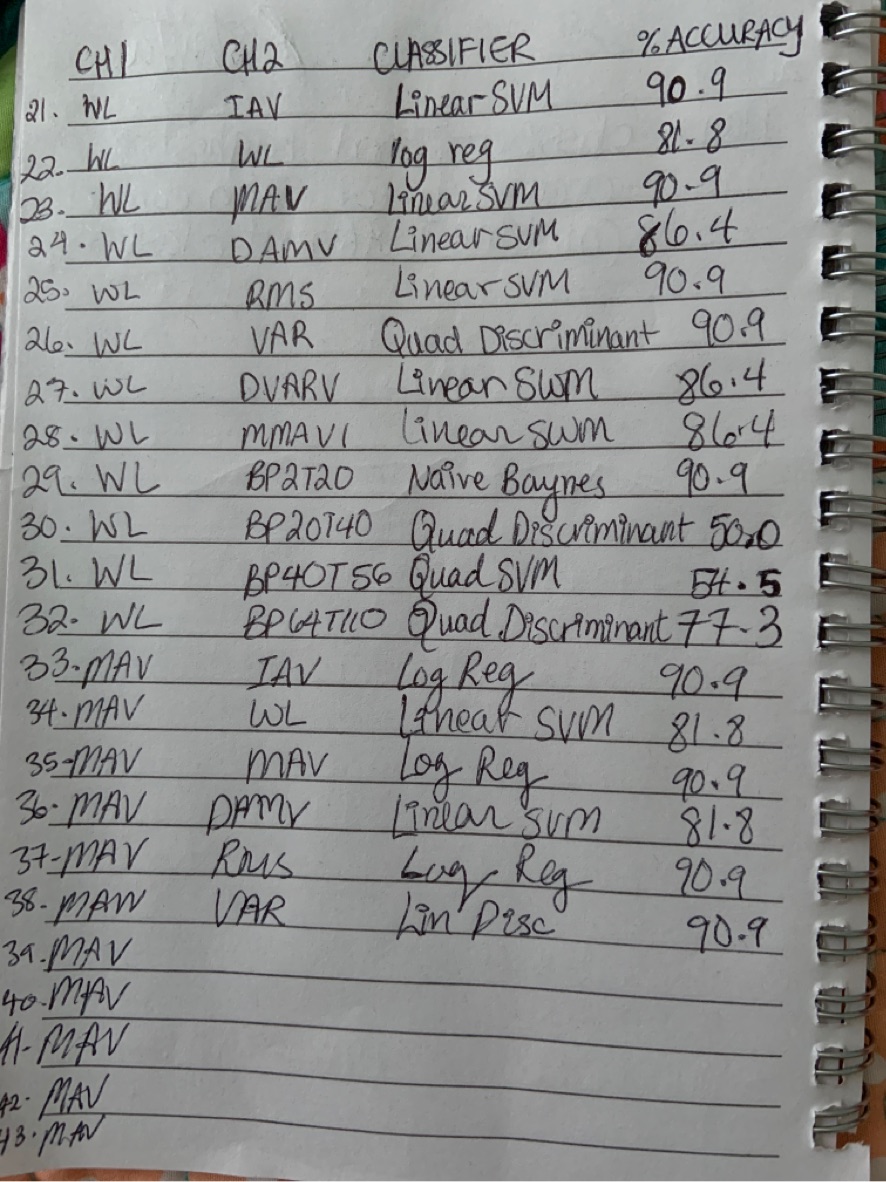 CH1 CH2 CLASSIFIER % ACCURACY
21. WL IAV Linear SVM 90.9
22. WL WL log reg 81.8
23. WL MAV Linear SVM 90.9
24. WL DAMV Linear SVM 86.4
25. WL RMS Linear SVM 90.9
26. WL VAR Quad Discriminant 90.9
27. WL DVARV Linear SWM 86.4
28. WL MMAV1 Linear SWM 86.4
29. WL BP2T20 Naïve Baynes 90.9
30. WL BP20T40 Quad Discriminant 50.0
31. WL BP40T56 Quad SVM 54.5
32. WL BP64T110 Quad Discriminant 77.3
33. MAV IAV Log Reg 90.9
34. MAV WL Linear SVM 81.8
35. MAV MAV Log Reg 90.9
36. MAV DAMV Linear SVM 81.8
37. MAV RMS Log Reg 90.9
38. MAW VAR Lin Disc 90.9
39. MAV
40. MAV
41. MAV
42. MAV
43. MAV